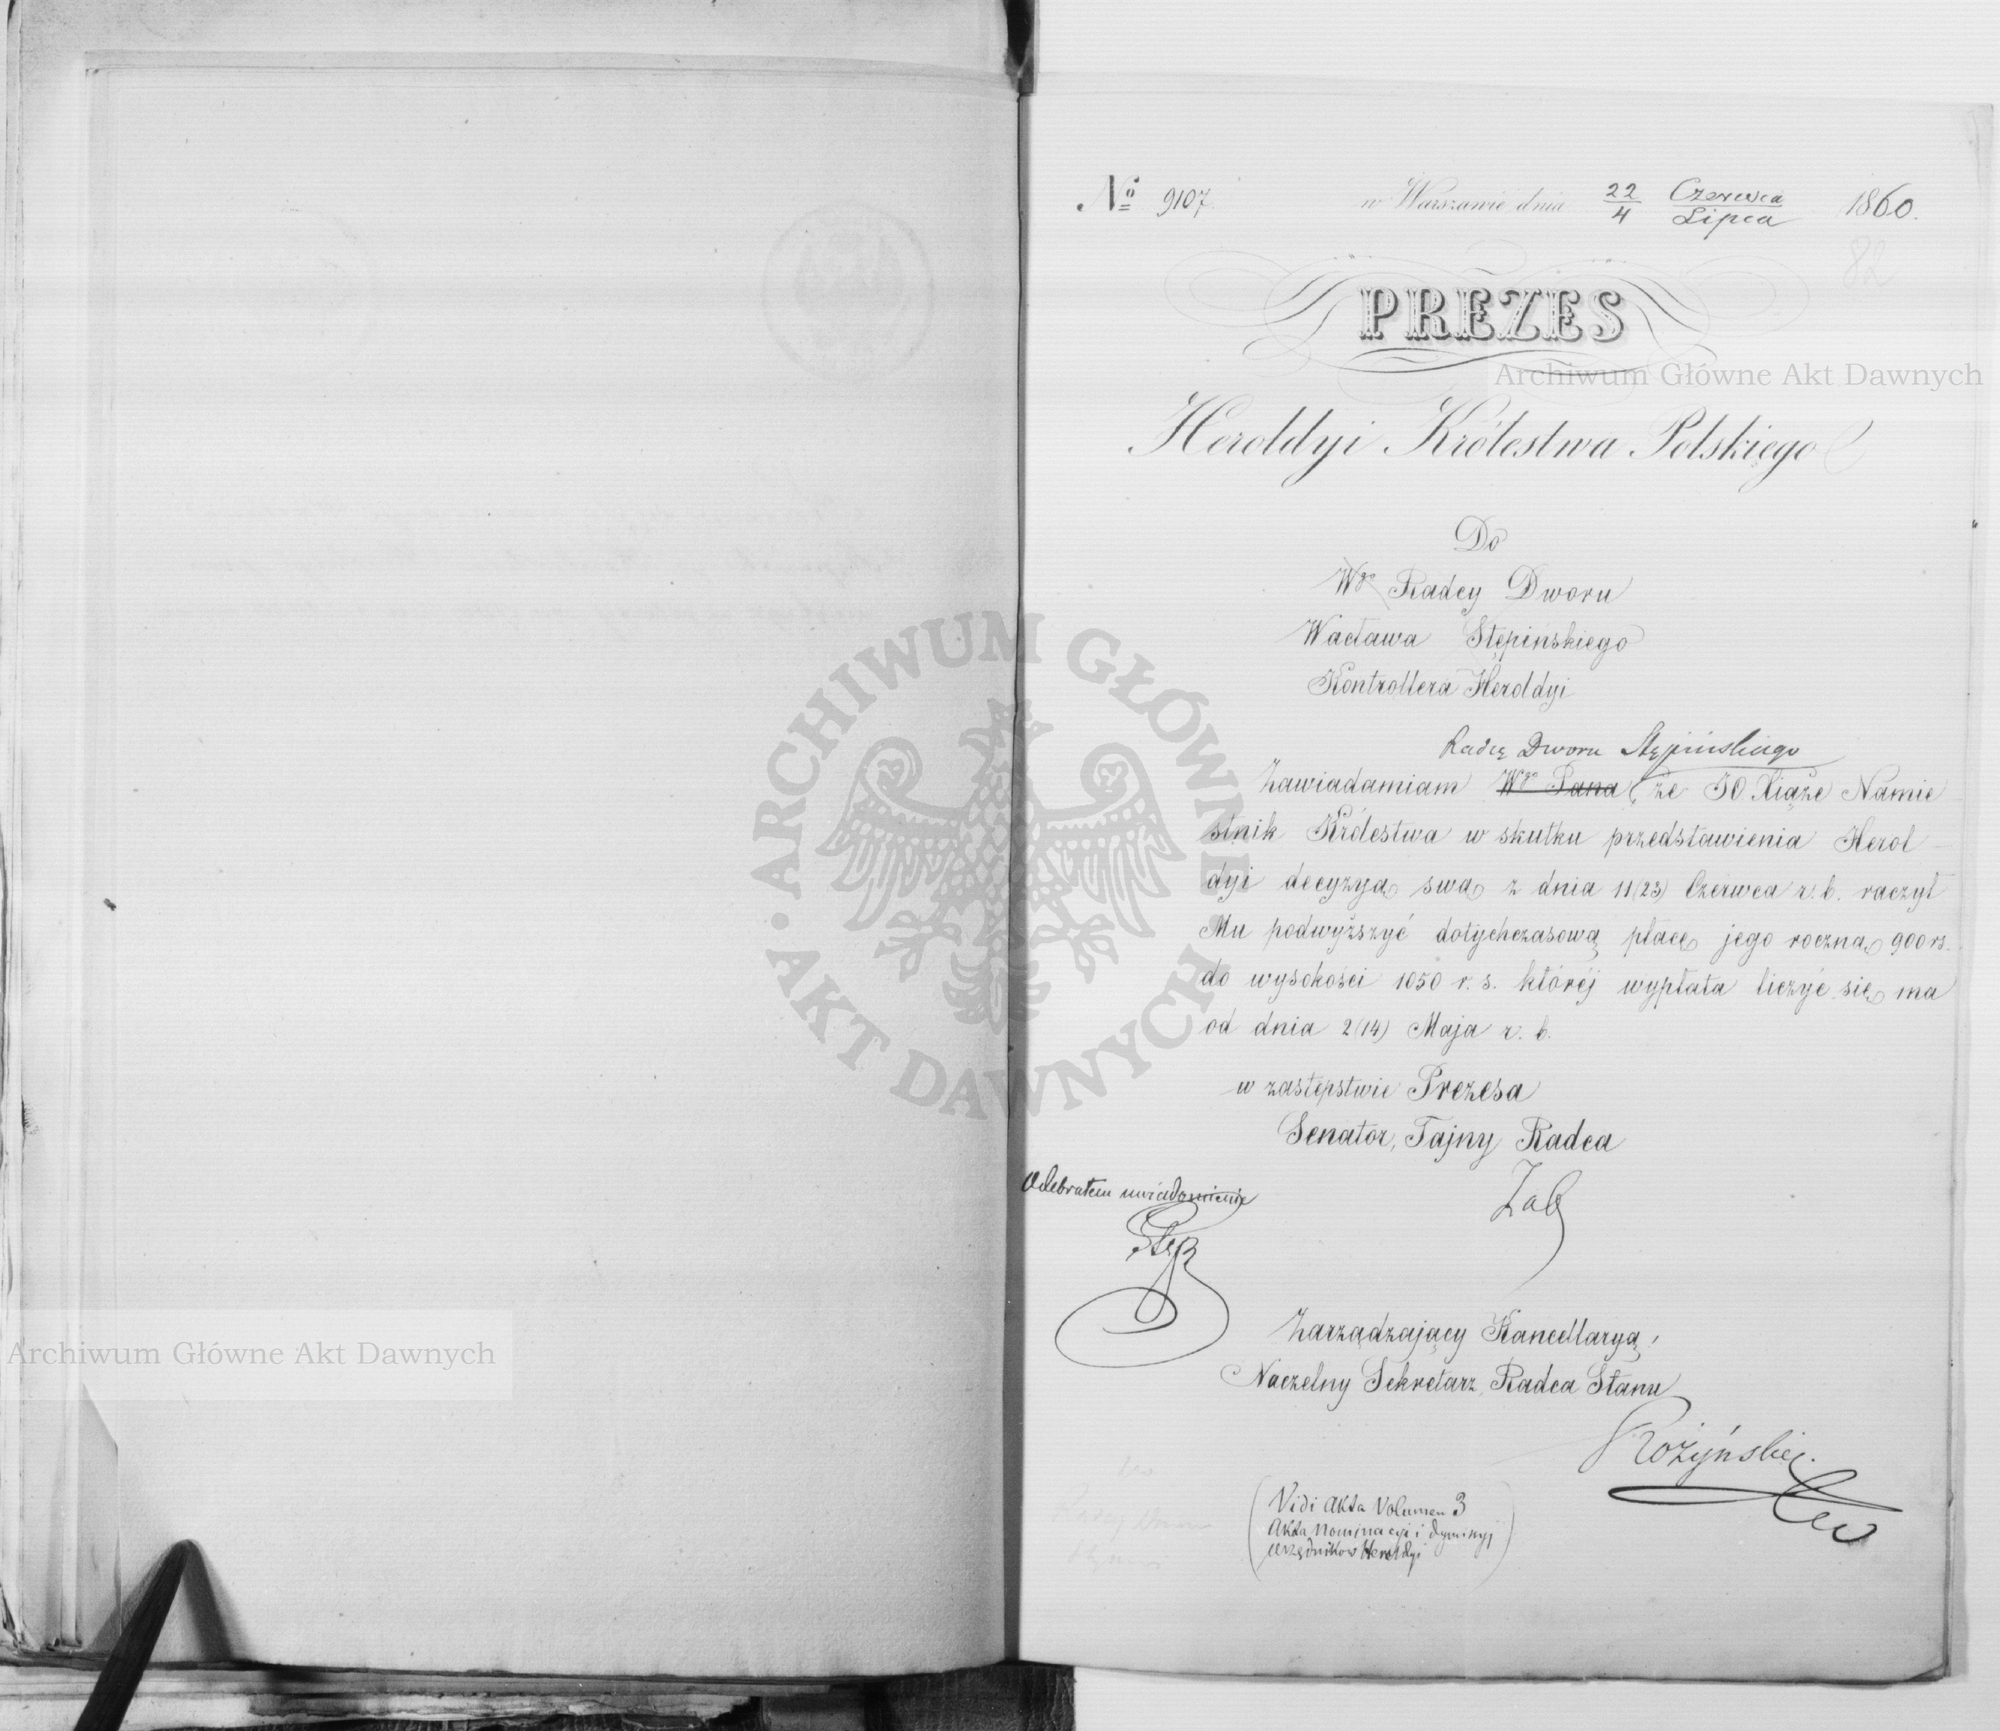 № 9107. w Warszawie dnia 22/4 Czerwca/Lipca 1860.
82
PREZES
Heroldyi Królestwa Polskiego
Do
Wgo Radcy Dworu
Wacława Stępińskiego
Kontrollera Heroldyi
Radcę Dworu Stępińskiego
Zawiadamiam Wgo Pana, że JO Xiąże Namie
stnik Królestwa w skutku przedstawienia Herol-
dyi decyzyą swą z dnia 11(23) Czerwca r. b. raczył
Mu podwyższyć dotychczasową płacę jego roczną 900 rs.
do wysokości 1050 r. s. któréj wypłata liczyć się ma
od dnia 2(14) Maja r. b.
w zastępstwie Prezesa
Senator, Tajny Radca
Odebrałem uwiadomienie
Zarządzający Kancellaryą,
Naczelny Sekretarz, Radca Stanu
Rożyński
Vidi Akta Volumen 3
Akta Nominacyi i dymisyj
urzędników Heroldyi
Archiwum Główne Akt Dawnych
Archiwum Główne Akt Dawnych
ARCHIWUM GŁÓWNE · AKT DAWNYCH ·